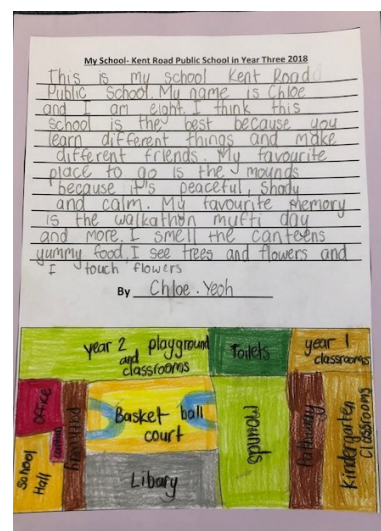 My School- Kent Road Public School in Year Three 2018
This is my school Kent Road
Public School. My name is Chloe
and I am eight. I think this
school is the best because you
learn different things and make
different friends. My favourite
place to go is the mounds
because it's peaceful, shady
and calm. My favourite memory
is the walkathon mufti day
and more. I smell the canteens
yummy food. I see trees and flowers and
I touch flowers
By Chloe. Yeoh
year 2 playground
and
classrooms
Toilets
year 1
classrooms
Office
canteen
School
Hall
Basket ball
court
Libary
mounds
Kindergarten
Classrooms